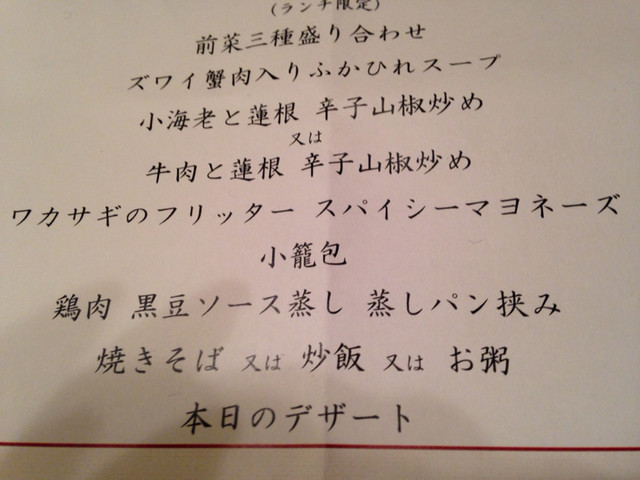 (ランチ限定)
前菜三種盛り合わせ
ズワイ蟹肉入りふかひれスープ
小海老と蓮根 辛子山椒炒め
又は
牛肉と蓮根 辛子山椒炒め
ワカサギのフリッター スパイシーマヨネーズ
小籠包
鶏肉 黒豆ソース蒸し 蒸しパン挟み
焼きそば 又は 炒飯 又は お粥
本日のデザート